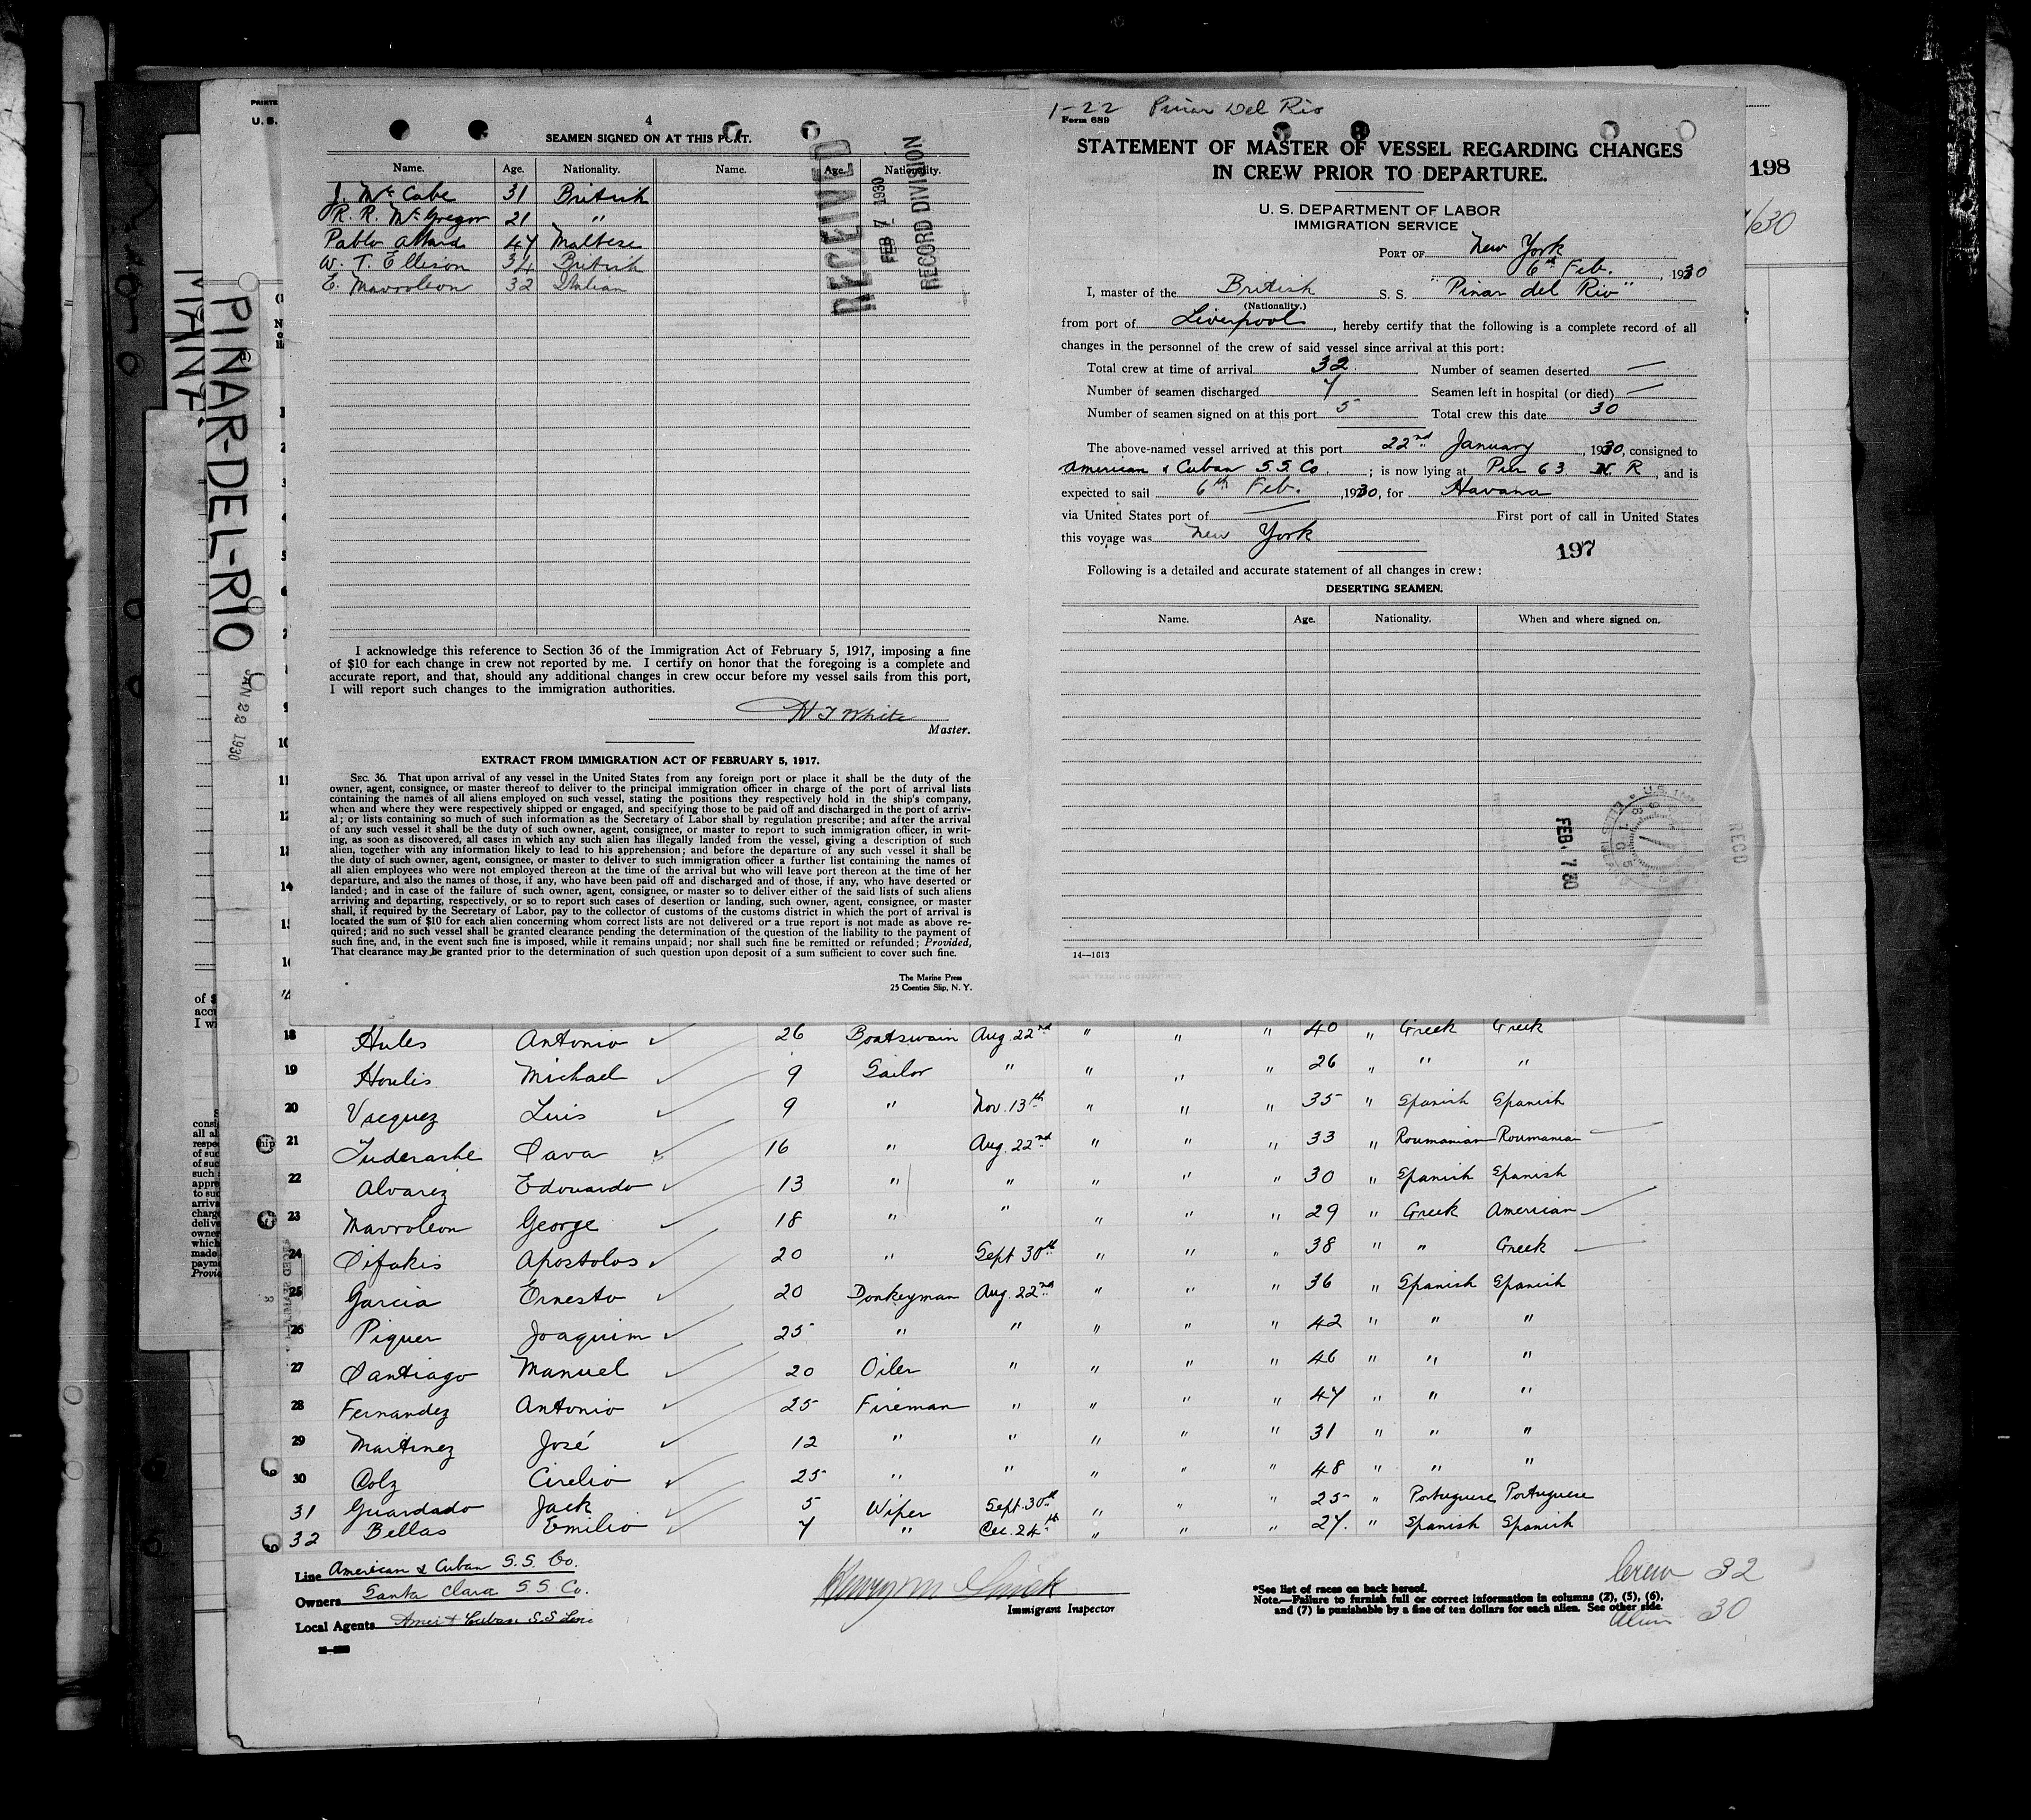 PINAR-DEL-RIO
JAN 22 1930
4
SEAMEN SIGNED ON AT THIS PORT.
Name. Age. Nationality. Name. Age. Nationality.
J. McCabe 31 British
R. R. McGregor 21 "
Pablo Attard 47 Maltese
W. T. Ellison 34 British
E. Mavroleon 32 Italian
RECEIVED
FEB 7 1930
RECORD DIVISION
I acknowledge this reference to Section 36 of the Immigration Act of February 5, 1917, imposing a fine
of $10 for each change in crew not reported by me. I certify on honor that the foregoing is a complete and
accurate report, and that, should any additional changes in crew occur before my vessel sails from this port,
I will report such changes to the immigration authorities.
W J White
Master.
EXTRACT FROM IMMIGRATION ACT OF FEBRUARY 5, 1917.
SEC. 36. That upon arrival of any vessel in the United States from any foreign port or place it shall be the duty of the
owner, agent, consignee, or master thereof to deliver to the principal immigration officer in charge of the port of arrival lists
containing the names of all aliens employed on such vessel, stating the positions they respectively hold in the ship's company,
when and where they were respectively shipped or engaged, and specifying those to be paid off and discharged in the port of arriv-
al; or lists containing so much of such information as the Secretary of Labor shall by regulation prescribe; and after the arrival
of any such vessel it shall be the duty of such owner, agent, consignee, or master to report to such immigration officer, in writ-
ing, as soon as discovered, all cases in which any such alien has illegally landed from the vessel, giving a description of such
alien, together with any information likely to lead to his apprehension; and before the departure of any such vessel it shall be
the duty of such owner, agent, consignee, or master to deliver to such immigration officer a further list containing the names of
all alien employees who were not employed thereon at the time of the arrival but who will leave port thereon at the time of her
departure, and also the names of those, if any, who have been paid off and discharged and of those, if any, who have deserted or
landed; and in case of the failure of such owner, agent, consignee, or master so to deliver either of the said lists of such aliens
arriving and departing, respectively, or so to report such cases of desertion or landing, such owner, agent, consignee, or master
shall, if required by the Secretary of Labor, pay to the collector of customs of the customs district in which the port of arrival is
located the sum of $10 for each alien concerning whom correct lists are not delivered or a true report is not made as above re-
quired; and no such vessel shall be granted clearance pending the determination of the question of the liability to the payment of
such fine, and, in the event such fine is imposed, while it remains unpaid; nor shall such fine be remitted or refunded; Provided,
That clearance may be granted prior to the determination of such question upon deposit of a sum sufficient to cover such fine.
The Marine Press
25 Coenties Slip, N. Y.
1-22 Pinar Del Rio
Form 689
STATEMENT OF MASTER OF VESSEL REGARDING CHANGES
IN CREW PRIOR TO DEPARTURE.
198
U. S. DEPARTMENT OF LABOR
IMMIGRATION SERVICE
PORT OF New York
6th Feb., 1930
I, master of the British S. S. "Pinar del Rio"
(Nationality.)
from port of Liverpool, hereby certify that the following is a complete record of all
changes in the personnel of the crew of said vessel since arrival at this port:
Total crew at time of arrival 32. Number of seamen deserted —
Number of seamen discharged 7 Seamen left in hospital (or died) —
Number of seamen signed on at this port 5 Total crew this date 30
The above-named vessel arrived at this port 22nd January, 1930, consigned to
American & Cuban S.S. Co.; is now lying at Pier 63 N. R, and is
expected to sail 6th Feb., 1930, for Havana
via United States port of — First port of call in United States
this voyage was New York
197
Following is a detailed and accurate statement of all changes in crew:
DESERTING SEAMEN.
Name. Age. Nationality. When and where signed on.
FEB. 7 30
RECD
14—1613
18 Hules Antonio 26 Boatswain Aug. 22nd " " " 40 " Greek Greek
19 Houlis Michael 9 Sailor " " " " 26 " " "
20 Vacquez Luis 9 " Nov. 13th " " " 35 " Spanish Spanish
21 Tuderashe Sava 16 " Aug. 22nd " " " 33 " Roumanian Roumania
22 Alvarez Edouardo 13 " " " " " 30 " Spanish Spanish
23 Mavroleon George 18 " " " " " 29 " Greek American
24 Sifakis Apostolos 20 " Sept 30th " " " 38 " " Greek
25 Garcia Ernesto 20 Donkeyman Aug. 22nd " " " 36 " Spanish Spanish
26 Piquer Joaquim 25 " " " " " 42 " " "
27 Santiago Manuel 20 Oiler " " " " 46 " " "
28 Fernandez Antonio 25 Fireman " " " " 47 " " "
29 Martinez José 12 " " " " " 31 " " "
30 Colz Cirelio 25 " " " " " 48 " " "
31 Guardado Jack 5 Wiper Sept. 30th " " " 25 " Portuguese Portuguese
32 Bellas Emilio 7 " Dec. 24th " " " 27. " Spanish Spanish
Line American & Cuban S.S. Co.
Owners Santa Clara S.S. Co.
Local Agents Amer & Cuban S.S. Line
Immigrant Inspector
*See list of races on back hereof.
Note.—Failure to furnish full or correct information in columns (2), (5), (6),
and (7) is punishable by a fine of ten dollars for each alien. See other side.
Crew 32
Alien 30